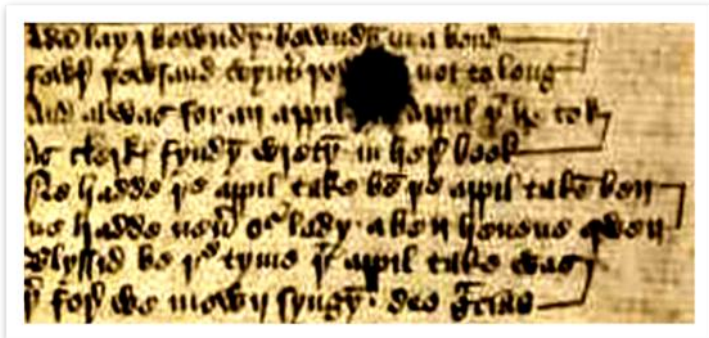 Adā lay I bowndȳ · bowndȳ in a bond
fowr þowsand wynt̄ þow not to long
And al was for an appil appil þt he tok
As clerk fyndȳ wretȳ in her book
Ne hadde þe appil take bē þe appil take ben
ne hadde neu̅ or lady · a ben heuene qwen
Blyssid be þe tyme þt appil take was
þ̅ for we mown syngȳ · deo gr̄cias